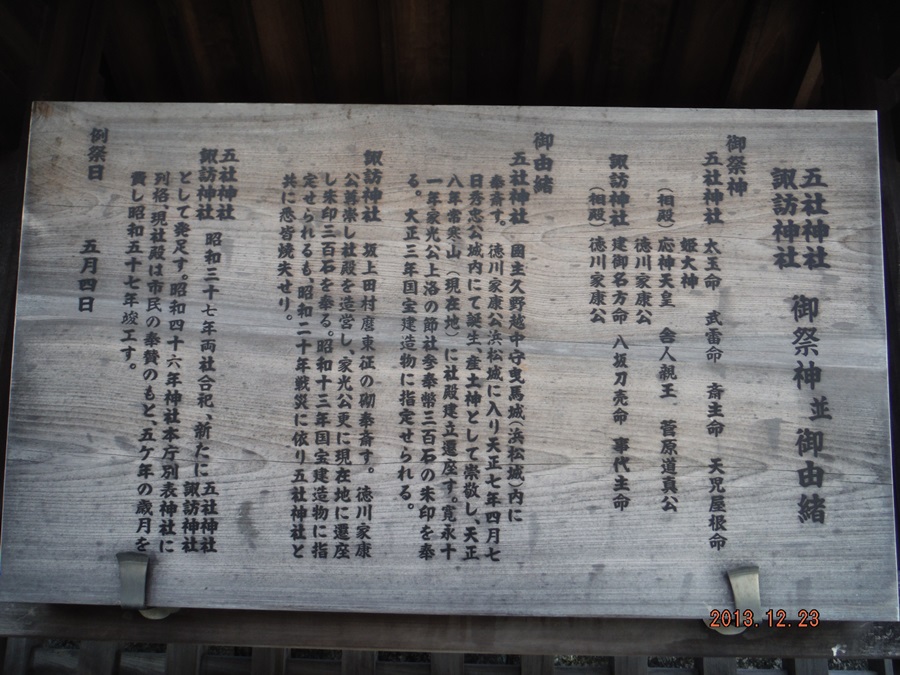 五社神社
諏訪神社 御祭神並御由緒
御祭神
五社神社 太玉命 武雷命 斎主命 天児屋根命
姫大神
(相殿) 応神天皇 舎人親王 菅原道真公
徳川家康公
諏訪神社 建御名方命 八坂刀売命 事代主命
(相殿) 徳川家康公
御由緒
五社神社 國主久野越中守曳馬城(浜松城)内に
奉斎す。徳川家康公浜松城に入り天正七年四月七
日秀忠公城内にて誕生、産土神として崇敬し、天正
八年常寒山(現在地)に社殿建立遷座す。寛永十
一年家光公上洛の節社参奉幣三百石の朱印を奉
る。大正三年国宝建造物に指定せられる。
諏訪神社 坂上田村麿東征の砌奉斎す。徳川家康
公再崇し社殿を造営し、家光公更に現在地に遷座
し朱印三百石を奉る。昭和十三年国宝建造物に指
定せられるも、昭和二十年戦災に依り五社神社と
共に悉皆焼失せり。
五社神社
諏訪神社 昭和三十七年両社合祀、新たに五社神社
諏訪神社
として発足す。昭和四十六年神社本庁別表神社に
列格、現社殿は市民の奉賛のもと、五ケ年の歳月を
費し昭和五十七年竣工す。
例祭日 五月四日
2013.12.23